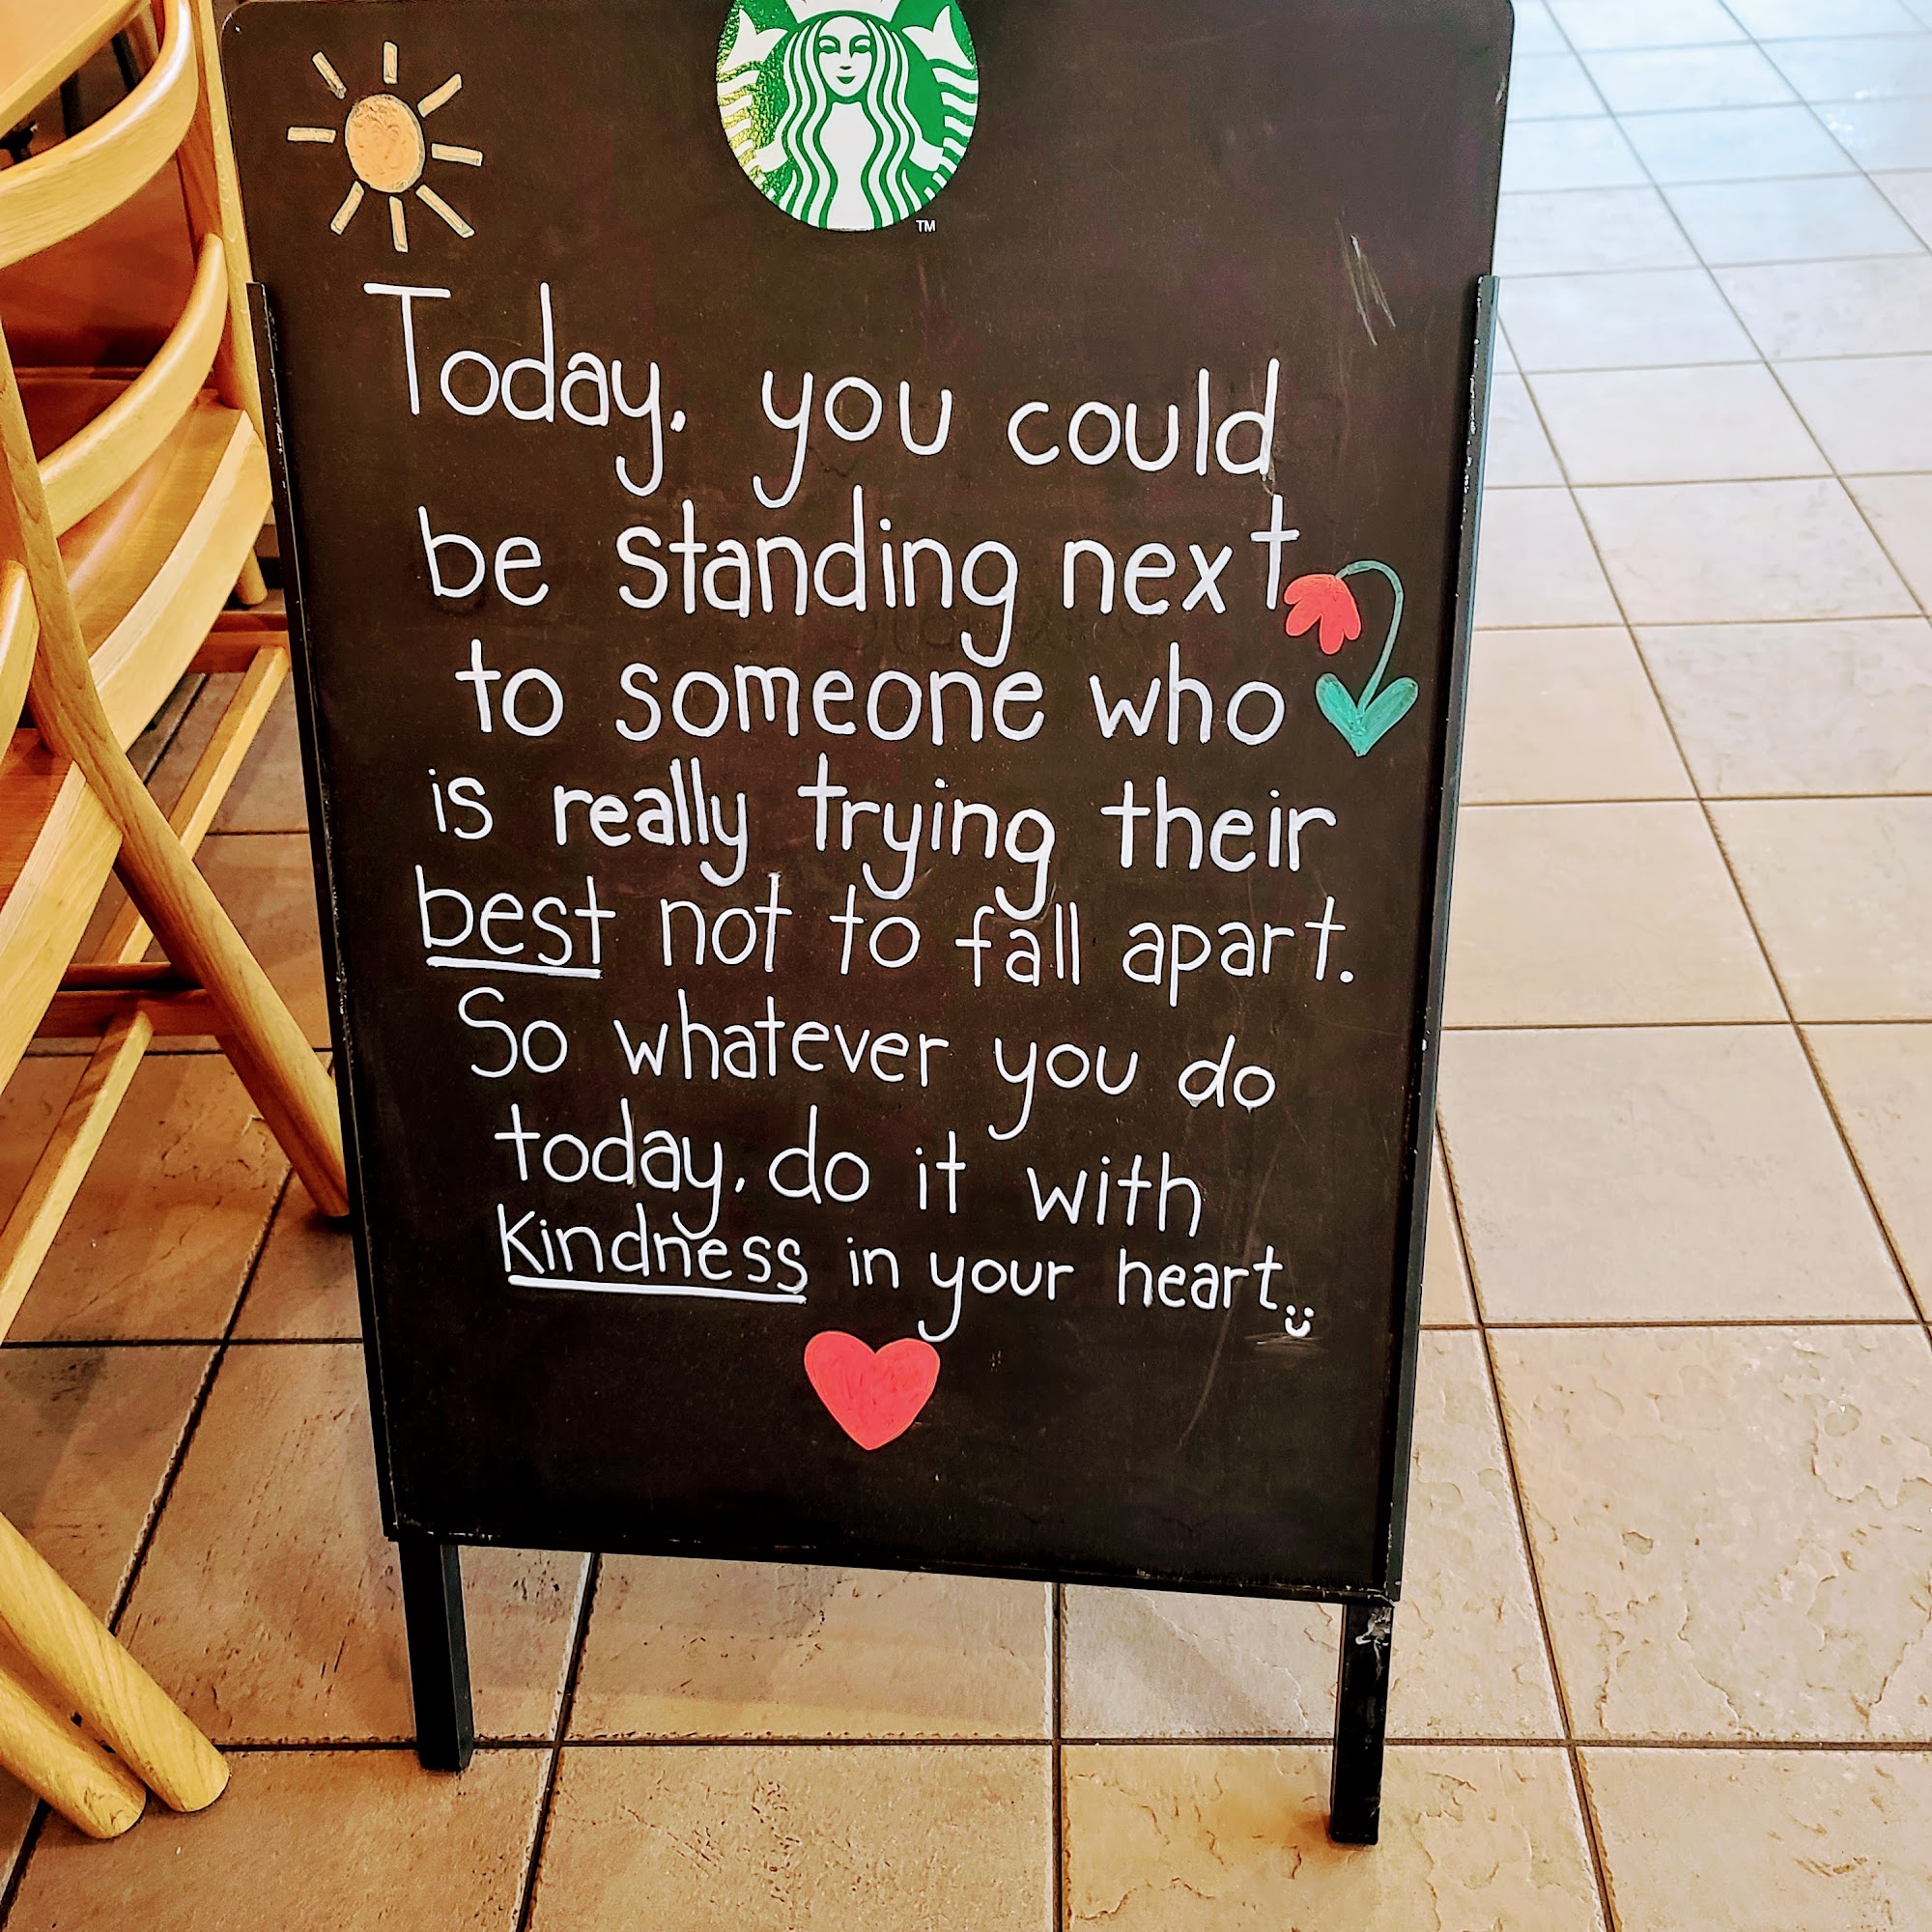 TM
Today, you could
be standing next
to someone who
is really trying their
best not to fall apart.
So whatever you do
today, do it with
Kindness in your heart